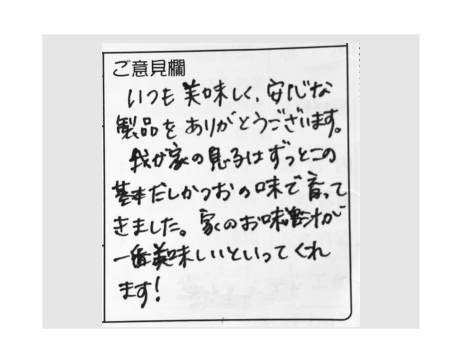 ご意見欄
いつも美味しく、安心な
製品をありがとうございます。
我が家の息子はずっとこの
基本だしかつおの味で育って
きました。家のお味噌汁が
一番美味しいといってくれ
ます!